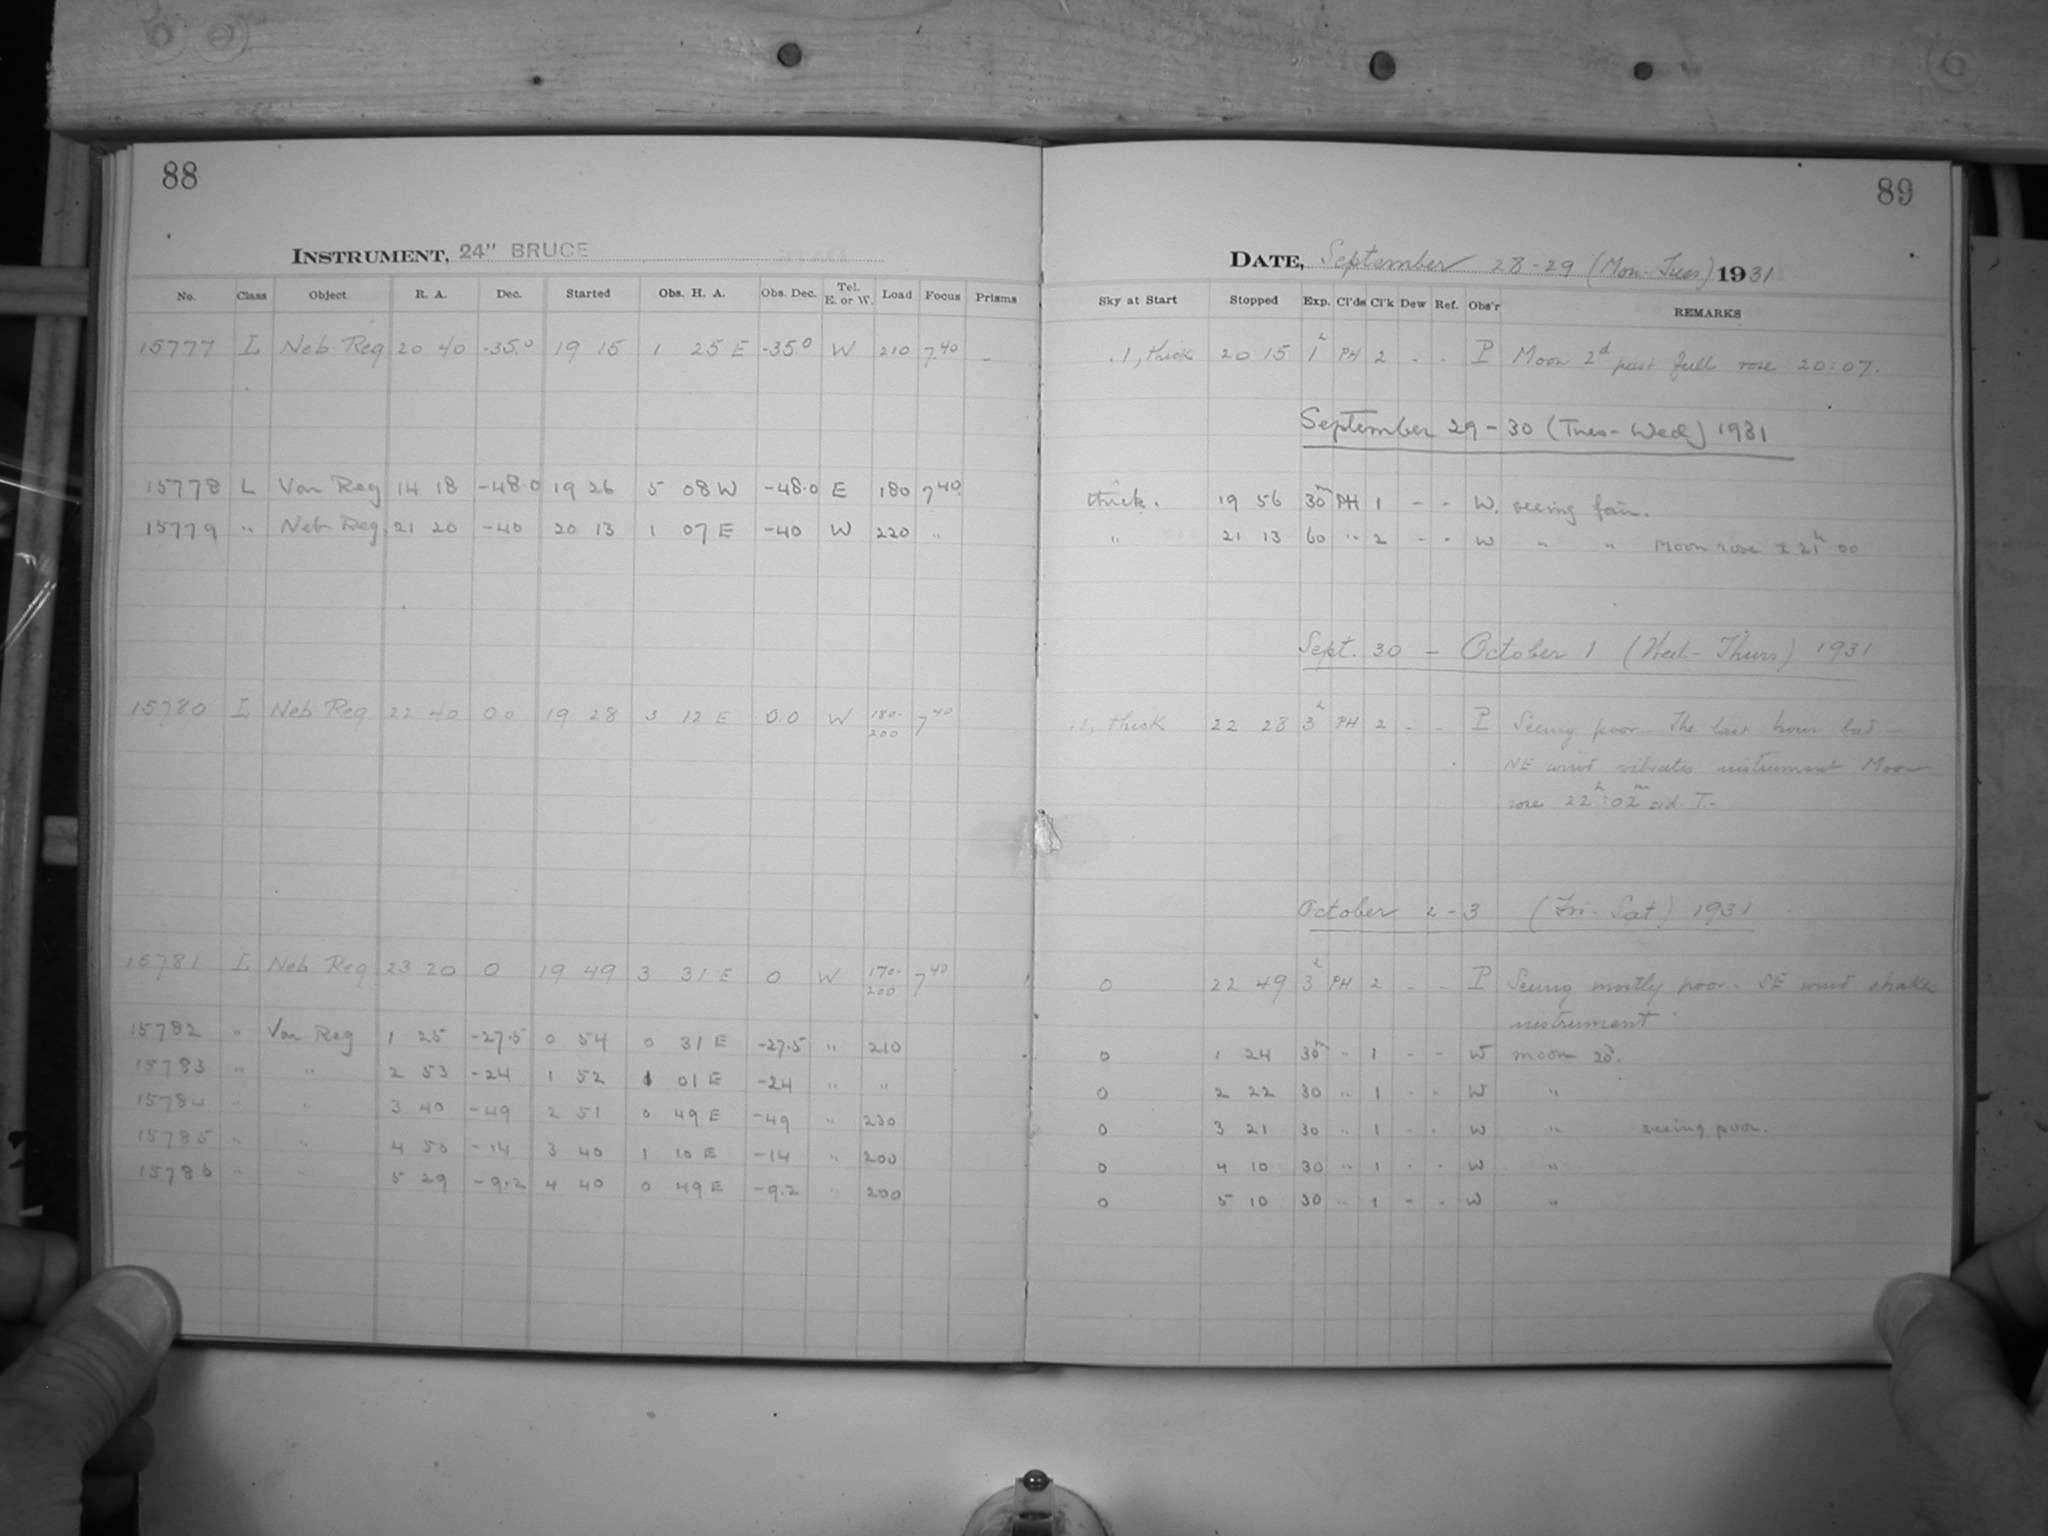 88
INSTRUMENT, 24" BRUCE
No. Class Object R. A. Dec. Started Obs. H. A. Obs. Dec. Tel. E. or W. Load Focus Prisms
15777 L Neb Reg 20 40 -35.0 19 15 1 25 E -35.0 W 210 7.40 -
15778 L Var Reg 14 18 -48.0 19 26 5 08 W -48.0 E 180 7.40
15779 " Neb Reg. 21 20 -40 20 13 1 07 E -40 W 220 "
15780 L Neb Reg 22 40 00 19 28 3 12 E 0.0 W 180-200 7.40
15781 L Neb Reg 23 20 0 19 49 3 31 E 0 W 170-200 7.40
15782 " Var Reg 1 25 -27.5 0 54 0 31 E -27.5 " 210
15783 " " 2 53 -24 1 52 1 01 E -24 " "
15784 " " 3 40 -49 2 51 0 49 E -49 " 230
15785 " " 4 50 -14 3 40 1 10 E -14 " 200
15786 " " 5 29 -9.2 4 40 0 49 E -9.2 " 200
89
DATE, September 28-29 (Mon-Tues) 1931
Sky at Start Stopped Exp. Cl'ds Cl'k Dew Ref. Obs'r REMARKS
.1, thick 20 15 1h PH 2 - - P Moon 2d past full rose 20:07.
September 29-30 (Tues-Wed) 1931
thick. 19 56 30m PH 1 - - W. seeing fair.
" 21 13 60 " 2 - - W " " Moon rose ± 21h 00
Sept. 30 - October 1 (Wed-Thurs) 1931
.1, thick 22 28 3h PH 2 - - P Seeing poor - The last hour bad -
NE wind vibrates instrument Moon
rose 22h:02m sid. T-
October 2-3 (Fri-Sat) 1931
0 22 49 3h PH 2 - - P Seeing mostly poor - SE wind shakes
instrument
0 1 24 30m " 1 - - W moon 20d.
0 2 22 30 " 1 - - W "
0 3 21 30 " 1 - - W " seeing poor.
0 4 10 30 " 1 - - W "
0 5 10 30 " 1 - - W "